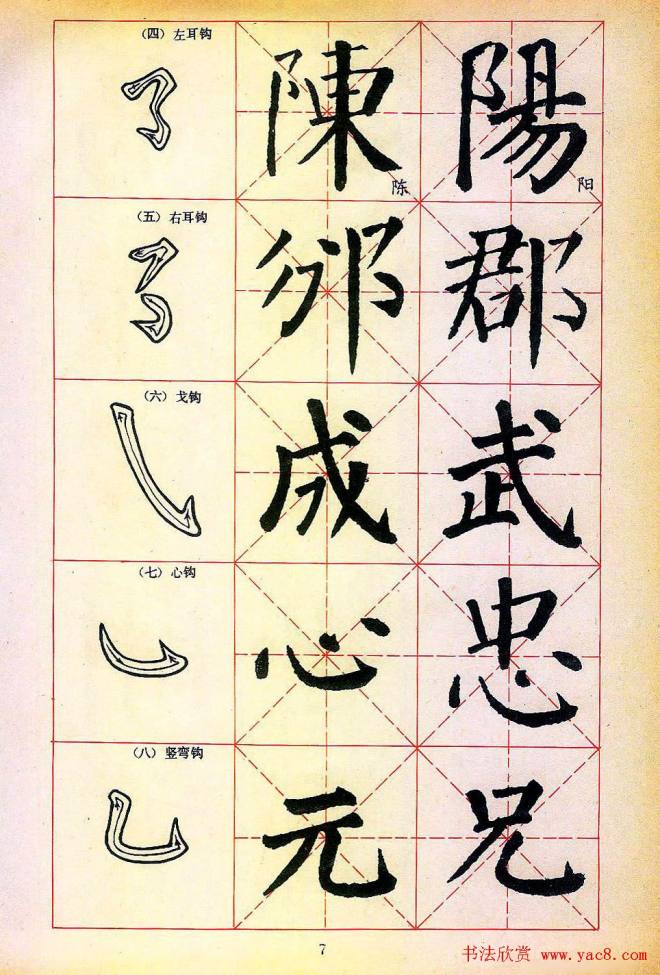 （四）左耳钩
陳
陈
陽
阳
（五）右耳钩
邠
郡
（六）戈钩
成
武
（七）心钩
心
忠
（八）竖弯钩
元
兄
7
书法欣赏 www.yac8.com